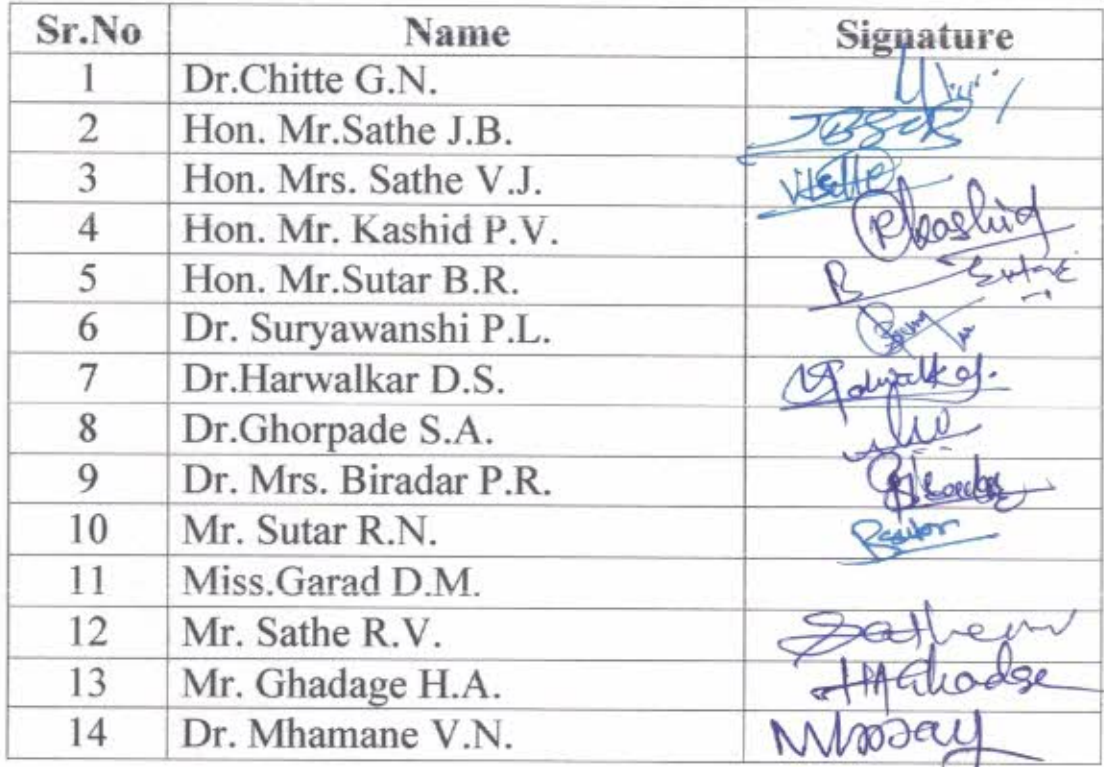 Sr.No Name Signature
1 Dr.Chitte G.N.
2 Hon. Mr.Sathe J.B.
3 Hon. Mrs. Sathe V.J.
4 Hon. Mr. Kashid P.V. PKashid
5 Hon. Mr.Sutar B.R.
6 Dr. Suryawanshi P.L.
7 Dr.Harwalkar D.S.
8 Dr.Ghorpade S.A.
9 Dr. Mrs. Biradar P.R.
10 Mr. Sutar R.N.
11 Miss.Garad D.M.
12 Mr. Sathe R.V.
13 Mr. Ghadage H.A. HAGhadge
14 Dr. Mhamane V.N.